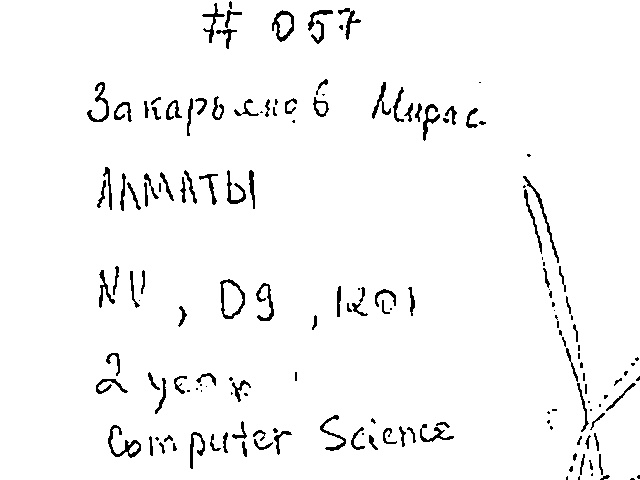 # 057
Закарьянов Мирас
АЛМАТЫ
NU, D9, 1201
2
Computer Science